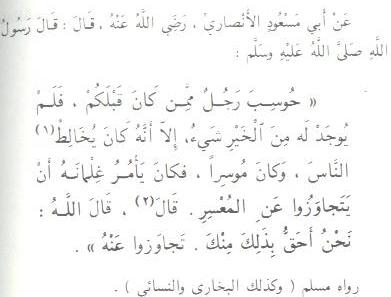 عَنْ أَبي مَسْعُودٍ الأَنْصاريِّ ، رَضِيَ اللَّهُ عَنْهُ ، قَالَ : قَالَ رَسُولُ
اللَّهِ صَلَّىَ اللَّهُ عَلَيْهِ وسَلَّم :
« حُوسِبَ رَجُلٌ مِمَّن كَانَ قَبْلَكُمْ ، فَلَمْ
يُوجَدْ لَه مِنَ ٱلْخَيْرِ شَيءُ، إلاَّ أنَّهُ كَانَ يُخَالِطُ(١)
النَّاسَ ، وَكَانَ مُوسِراً ، فكانَ يَأْمُرُ غِلْمَانَهُ أَنْ
يَتَجاوَزُوا عَنِ المُعْسِرِ . قَالَ(٢) ، قَالَ اللَّهُ :
نَحْنُ أَحَقُّ بِذَلِكَ مِنْكَ . تَجاوَزوا عَنْهُ » .
رواه مسلم ( وكذلك البخارى والنسائى ) .